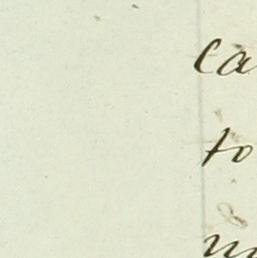 ca
to
m